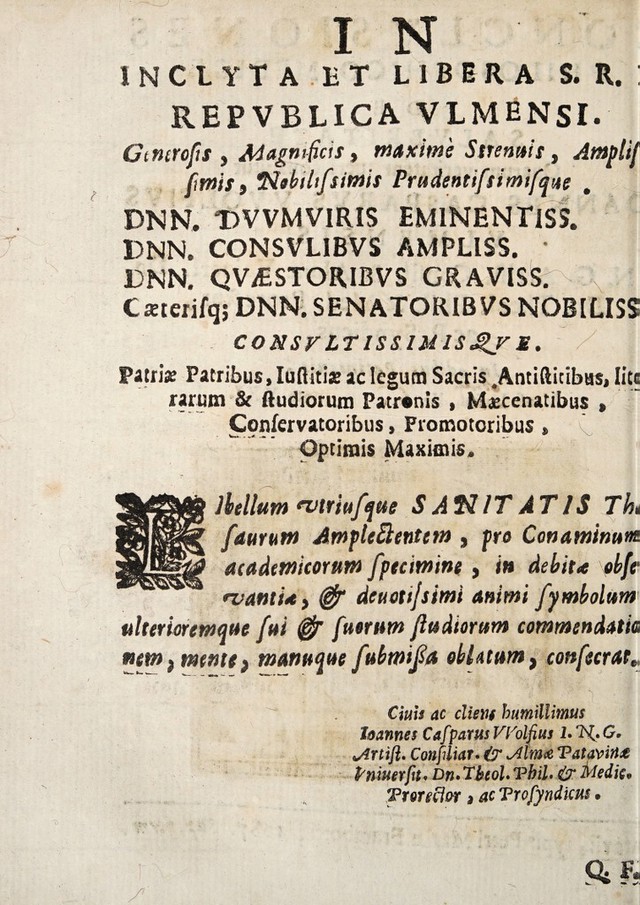 I N
INCLYTA ET LIBERA S. R. I
REPVBLICA VLMENSI.
Generoſis, Magnificis, maximè Strenuis, Ampliſ
ſimis, Nobiliſſimis Prudentiſſimiſque.
DNN. DVVMVIRIS EMINENTISS.
DNN. CONSVLIBVS AMPLISS.
DNN. QVÆSTORIBVS GRAVISS.
Cæteriſq; DNN. SENATORIBVS NOBILISS
CONSVLTISSIMISQVE.
Patriæ Patribus, Iuſtitiæ ac legum Sacris Antiſtitibus, lite
rarum & ſtudiorum Patronis, Mæcenatibus,
Conſervatoribus, Promotoribus,
Optimis Maximis.
LIbellum vtriuſque SANITATIS The
ſaurum Amplectentem, pro Conaminum
academicorum ſpecimine, in debitæ obſe
vantiæ, & deuotiſſimi animi ſymbolum
ulterioremque ſui & ſuorum ſtudiorum commendatio
nem, mente, manuque ſubmißa oblatum, conſecrat.
Ciuis ac cliens humillimus
Ioannes Caſparus VVolfius I. N. G.
Artiſt. Conſiliar. & Almæ Patavinæ
Vniuerſit. Dn. Theol. Phil. & Medic.
Prorector, ac Proſyndicus.
Q. F.